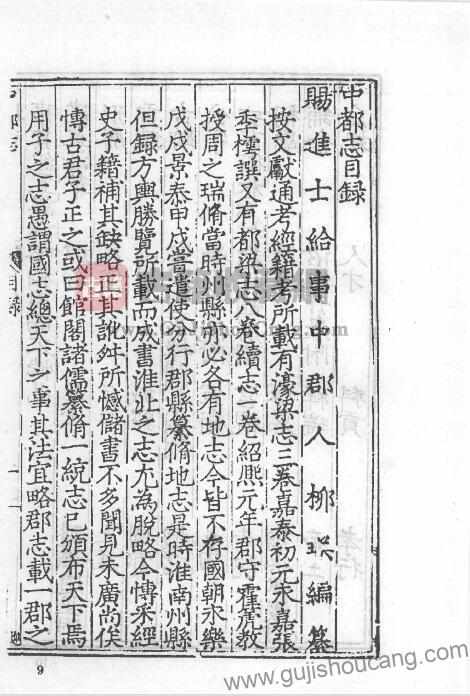 中都志目録
賜進士給事中郡人栁瑛編纂
按文獻通考經籍考所載有濠梁志三卷嘉泰初元永嘉張
季樗譔又有都梁志八卷續志一卷紹熈元年郡守霍篪教
授周之瑞脩當時州縣亦必各有地志今皆不存國朝永樂
戊戌景泰甲戌嘗遣使分行郡縣纂脩地志是時淮南州縣
但録方輿勝覽所載而成書淮北之志尤為脫略今愽采經
史子籍補其缺略正其訛舛所憾儲書不多聞見未廣尚俟
愽古君子正之或曰館閣諸儒纂脩一統志已頒布天下焉
用子之志愚謂國志總天下之事其法宜略郡志載一郡之
中都志
目録
一
9
www.gujishoucang.com